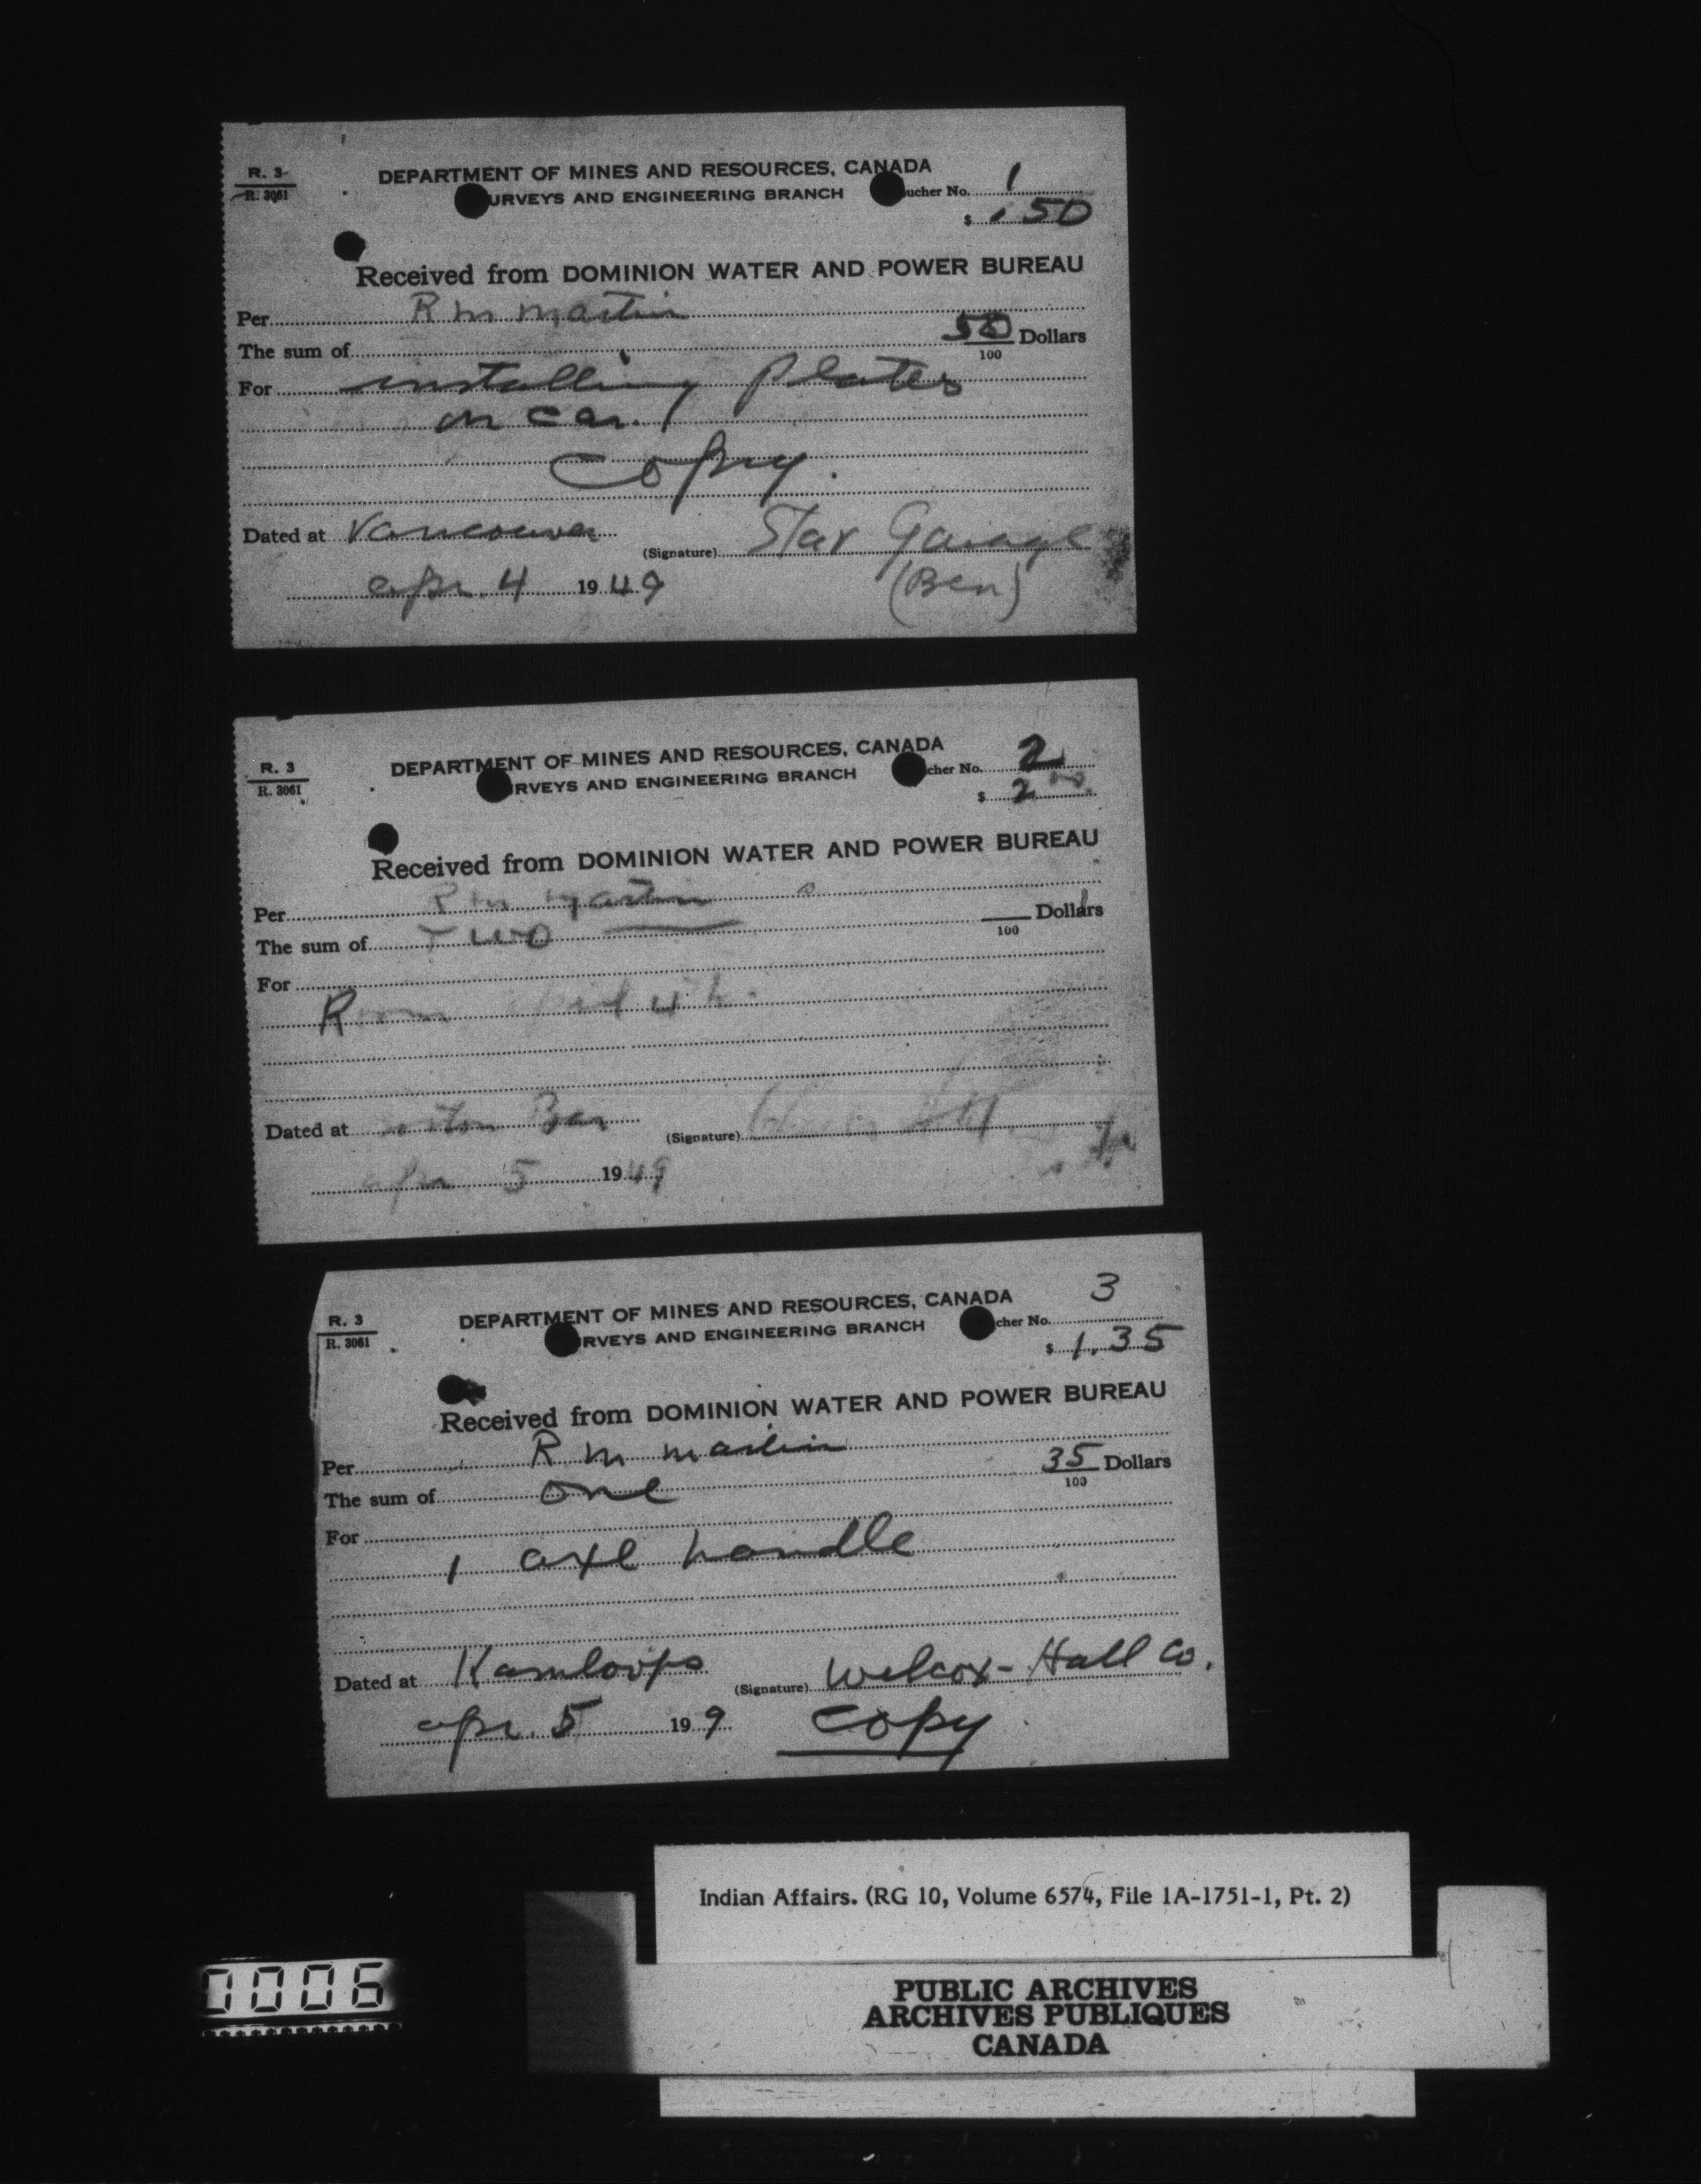 R. 3
R. 3061
DEPARTMENT OF MINES AND RESOURCES, CANADA
URVEYS AND ENGINEERING BRANCH
ucher No. 1
$ .50
Received from DOMINION WATER AND POWER BUREAU
Per R M Martin
The sum of 50/100 Dollars
For installing plates
on car.
Copy.
Dated at Vancouver
(Signature) Star Garage
apr. 4 1949
(Ben)
R. 3
R. 3061
DEPARTMENT OF MINES AND RESOURCES, CANADA
RVEYS AND ENGINEERING BRANCH
cher No. 2
$ 2
Received from DOMINION WATER AND POWER BUREAU
Per R M Martin
The sum of Two /100 Dollars
For
Room
Dated at Bar
(Signature)
apr 5 1949
R. 3
R. 3061
DEPARTMENT OF MINES AND RESOURCES, CANADA
RVEYS AND ENGINEERING BRANCH
3
cher No.
$ 1.35
Received from DOMINION WATER AND POWER BUREAU
Per R M Martin
The sum of One 35/100 Dollars
For
1 axe handle
Dated at Kamloops
(Signature) Welcox-Hall Co.
apr. 5 19 9
Copy
Indian Affairs. (RG 10, Volume 6574, File 1A-1751-1, Pt. 2)
PUBLIC ARCHIVES
ARCHIVES PUBLIQUES
CANADA
0006